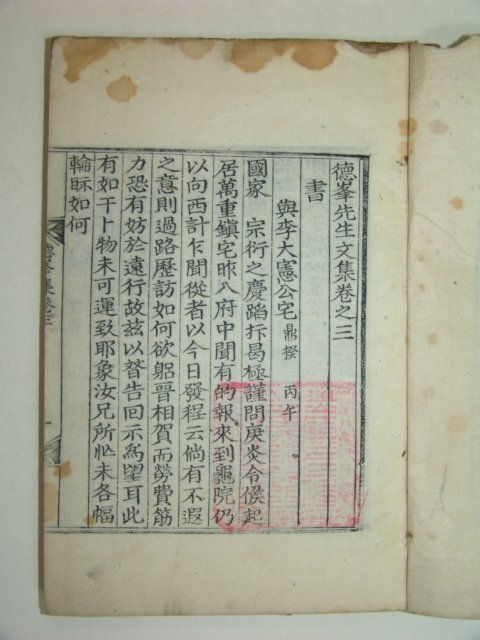 德峯先生文集卷之三
書
與李大憲公宅 鼎揆 丙午
國家 宗衍之慶蹈抃曷極謹問庚炎令候起
居萬重鎭宅昨入府中聞有的報來到龜院仍
以向西計乍聞從者以今日發程云倘有不遐
之意則過路歷訪如何欲躬晉相賀而勞費筋
力恐有妨於遠行故玆以替告回示爲望耳此
有如干卜物未可運致耶象汝兄所忙未各幅
輪眎如何
德峯集卷三